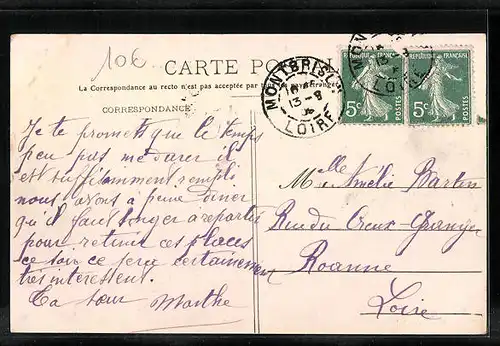 106
CARTE POSTALE
La Correspondance au recto n'est pas acceptée par
CORRESPONDANCE
MONTBRISON
13-8
LOIRE
REPUBLIQUE FRANÇAISE
5c POSTES
REPUBLIQUE FRANÇAISE
5c POSTES
LOIRE
Je te promets que le temps
peu pas me durer il
est suffisamment rempli
nous avons a peine diner
qu'il faut songer a repartir
pour retenir ces places
ce soir ce sera certainement
très interessent.
Ta sœur Marthe
Melle Amélie Bartin
Rue du Creux-Granger
Roanne
Loire